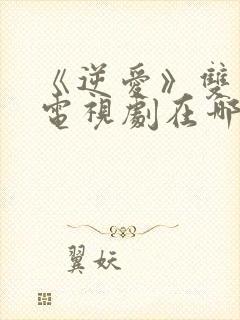 《逆愛》雙
電視劇在哪
翼妖